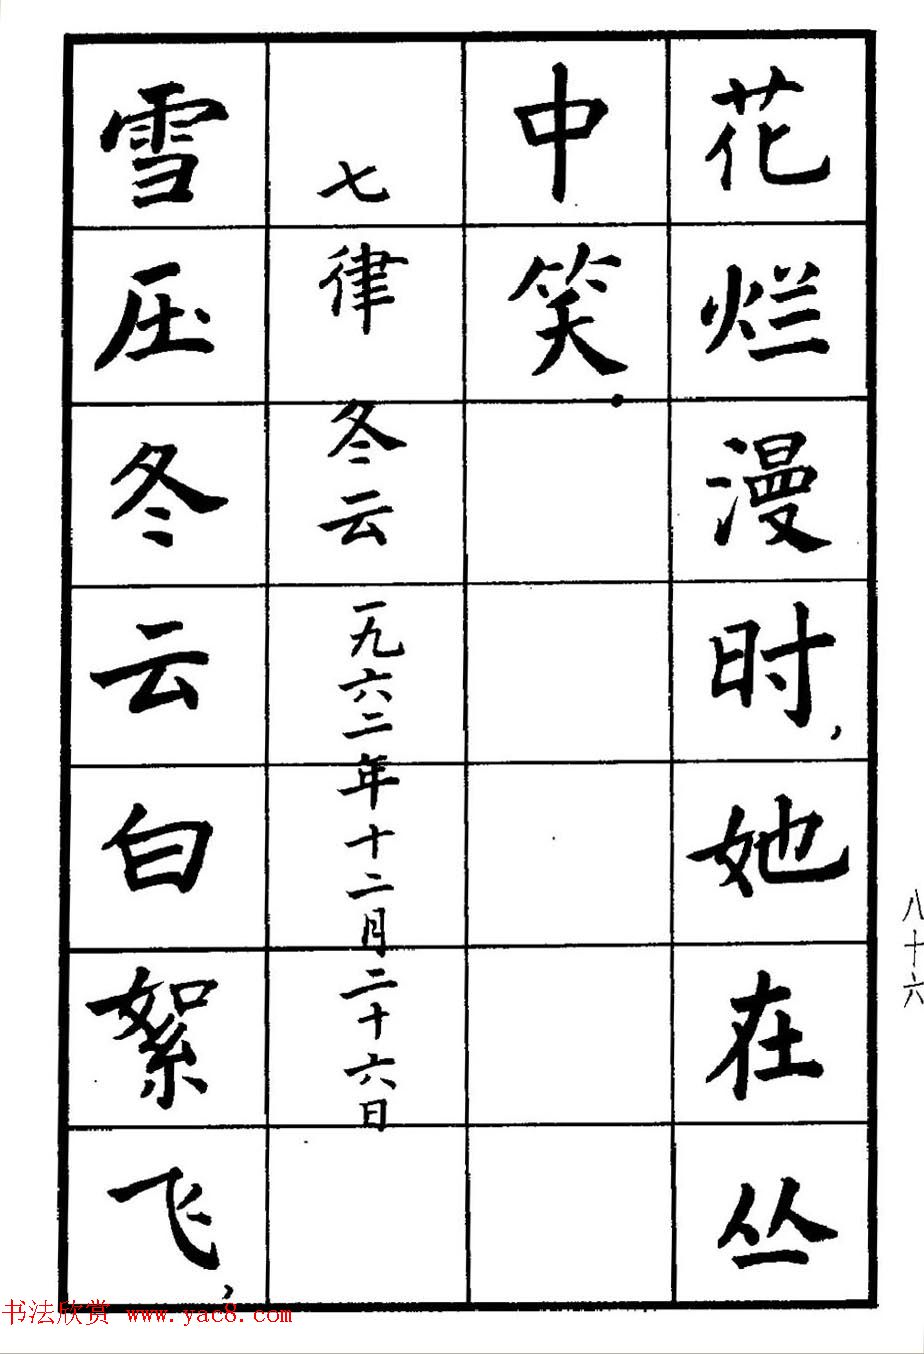 花烂漫时，她在丛
中笑。
七律 冬云 一九六二年十二月二十六日
雪压冬云白絮飞，
八十六
书法欣赏 www.yac8.com